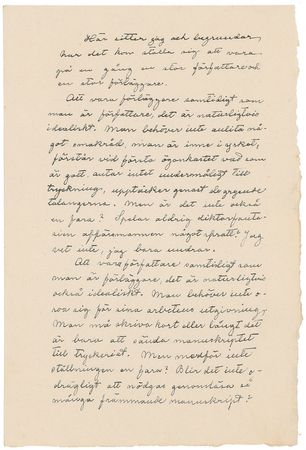 Här sitter jag och begrundar,
hur det kom ställa sig att vara
på en gång en stor författare och
en stor förläggare.
Att vara förläggare samtidigt som
man är författare, det är naturligtvis
idealiskt. Man behöver inte anlita nå-
got smakråd, man är inne i yrket,
förstår vid första ögonkastet vad som
är gott, antar intet undermåligt till
tryckning, upptäcker genast de argusnde
talangerna. Men är det inte också
en fara? Spelar aldrig diktarfanta-
sien affärsmannen något spratt? Jag
vet inte, jag bara undrar.
Att vara författare samtidigt som
man är förläggare, det är naturligtvis
också idealiskt. Man behöver inte o-
roa sig för sina arbetens utgivning,
Man må skriva kort eller långt det
är bara att sända manuskriptet
till tryckeriet. Men medför inte
ställningen en fara? Blir det inte o-
drägligt att nödgas genomläsa så
många främmande manuskript?